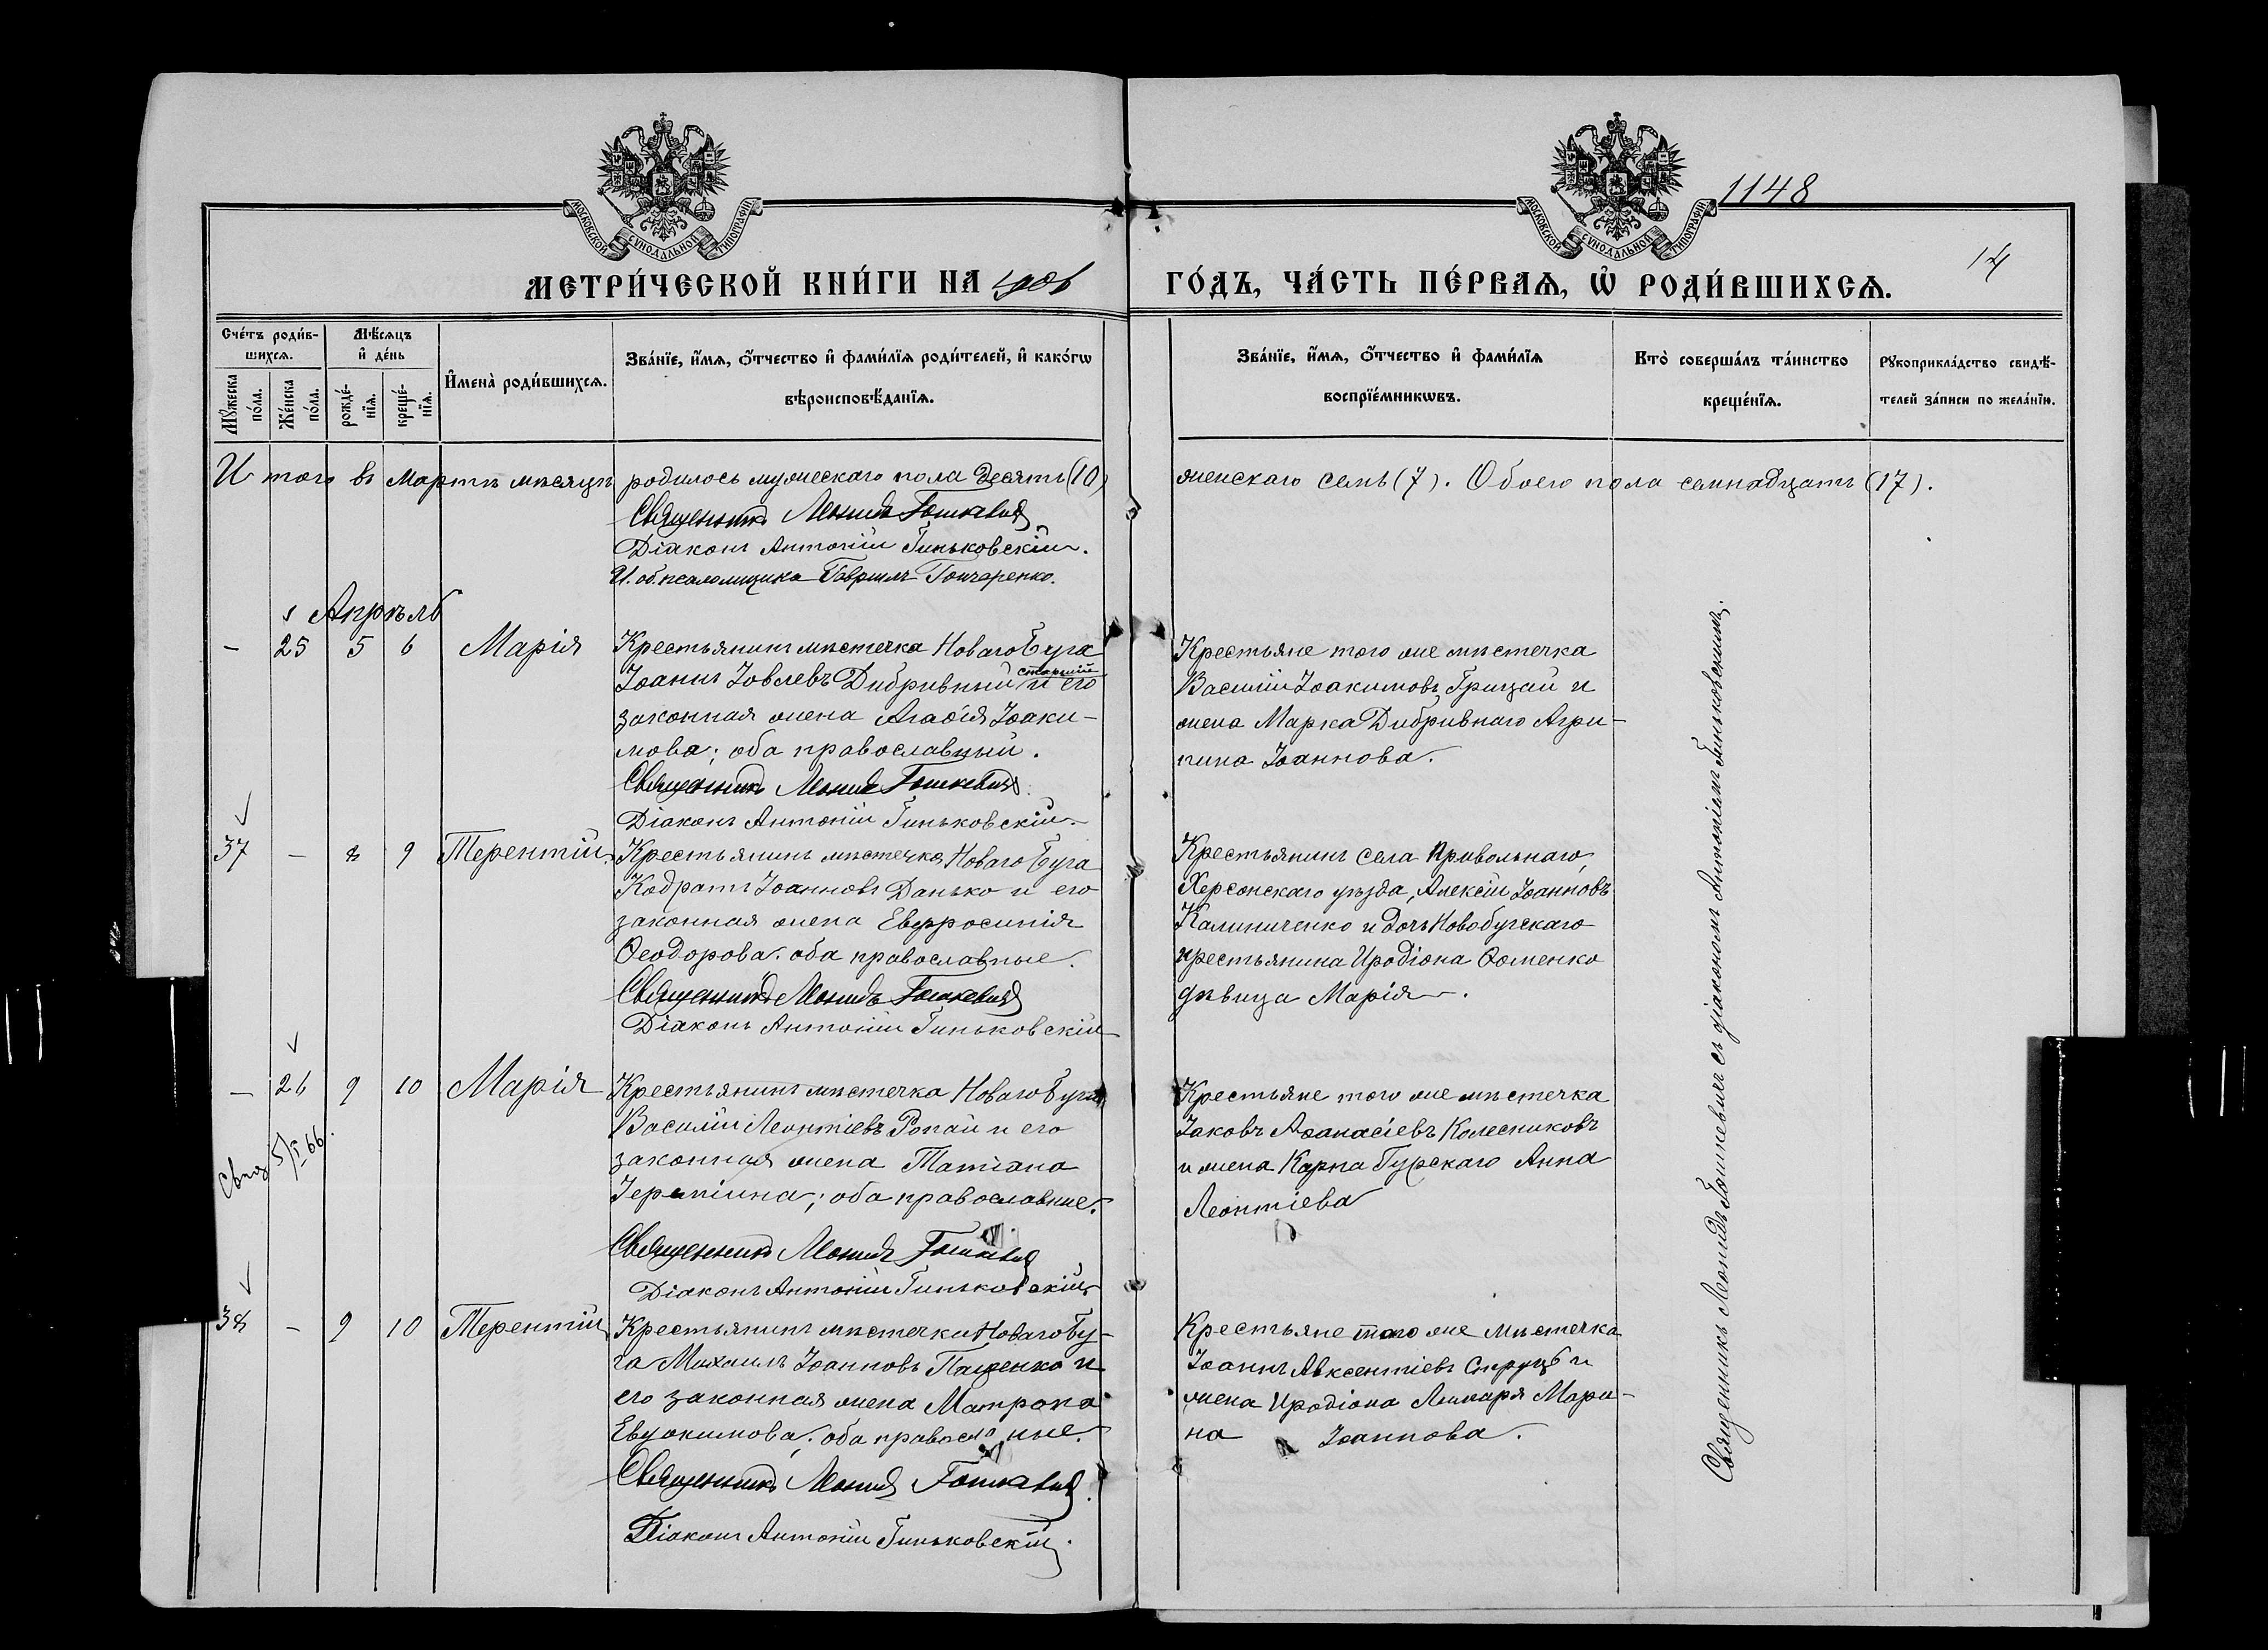 МОСКОВСКОЙ СѴНОДАЛЬНОЙ ТИПОГРАФІИ
МОСКОВСКОЙ СѴНОДАЛЬНОЙ ТИПОГРАФІИ
1148
14
МЕТРИ́ЧЕСКОЙ КНИ́ГИ НА 1906
ГО́ДЪ, ЧА́СТЬ ПЕ́РВАѦ, Ѡ҆ РОДИ́ВШИХСѦ.
Сче́тъ роди́в-
шихсѧ.
Мꙋ́жеска
по́ла.
Же́нска
по́ла.
Мѣ́сѧцъ
и҆ де́нь
рожде́-
нїѧ.
креще́-
нїѧ.
И҆мена̀ роди́вшихсѧ.
Зва́нїе, и҆́мѧ, ѻ҆́тчество и҆ фами́лїѧ роди́телей, и҆ како́гѡ
вѣроисповѣ́данїѧ.
Зва́нїе, и҆́мѧ, ѻ҆́тчество и҆ фами́лїѧ
воспрїе́мникѡвъ.
Кто̀ соверша́лъ та́инство
креще́нїѧ.
Рꙋкоприкла́дство свидѣ́-
телей за́писи по жела́нїю.
Итого въ Мартѣ мѣсяцѣ родилось мужескаго пола десять (10)
женскаго семь (7). Обоего пола семнадцать (17).
Священникъ Леонидъ Гошкевичъ
Діаконъ Антоній Гиньковскій.
И. об. псаломщика Гавриилъ Гончаренко.
Апрѣль
- 25 5 6 Марія
Крестьянинъ мѣстечка Новаго Буга
Іоаннъ Іовлевъ Дибривный старшій и его
законная жена Агафія Іоаки-
мова; оба православный.
Священникъ Леонидъ Гошкевичъ
Діаконъ Антоній Гиньковскій
Крестьяне того же мѣстечка
Василій Іоакимовъ Грицай и
жена Марка Дибривнаго Агри-
пина Іоаннова.
37 - 8 9 Терентій
Крестьянинъ мѣстечка Новаго Буга
Кодратъ Іоанновъ Данько и его
законная жена Евфросинія
Ѳеодорова. оба православные.
Священникъ Леонидъ Гошкевичъ
Діаконъ Антоній Гиньковскій
Крестьянинъ села Привольнаго,
Херсонскаго уѣзда, Алексій Іоанновъ
Калиниченко и дочь Новобугскаго
крестьянина Иродіона Ѳоменко
дѣвица Марія.
- 26 9 10 Марія
Крестьянинъ мѣстечка Новаго Буга
Василій Леонтіевъ Ропай и его
законная жена Татіана
Іереміина; оба православные.
Священникъ Леонидъ Гошкевичъ
Діаконъ Антоній Гиньковскій
Крестьяне того же мѣстечка
Іаковъ Аѳанасіевъ Колесниковъ
и жена Карпа Гурскаго Анна
Леонтіева
5/I 66.
38 - 9 10 Терентій
Крестьянинъ мѣстечка Новаго Бу-
га Михаилъ Іоанновъ Пащенко и
его законная жена Матрона
Евдокимова; оба правосла ные.
Священникъ Леонидъ Гошкевичъ.
Діаконъ Антоній Гиньковскій.
Крестьяне того же мѣстечка
Іоаннъ Авксентіевъ и
жена Иродіона Лимаря Мари-
на Іоаннова.
Священникъ Леонидъ Гошкевичъ съ діакономъ Антоніемъ Гиньковскимъ.